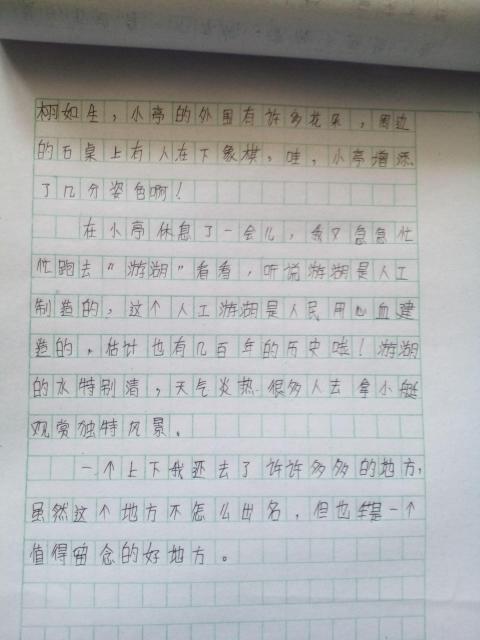 栩如生，小亭的外围有许多花朵，周边
的石桌上有人在下象棋，哇，小亭增添
了几分姿色啊！
在小亭休息了一会儿，我又急急忙
忙跑去“游湖”看看，听说游湖是人工
制造的，这个人工游湖是人民用心血建
造的，估计也有几百年的历史哇！游湖
的水特别清，天气炎热 很多人去拿小艇
观赏独特风景。
一个上下我还去了许许多多的地方，
虽然这个地方不怎么出名，但也一个
值得留念的好地方。